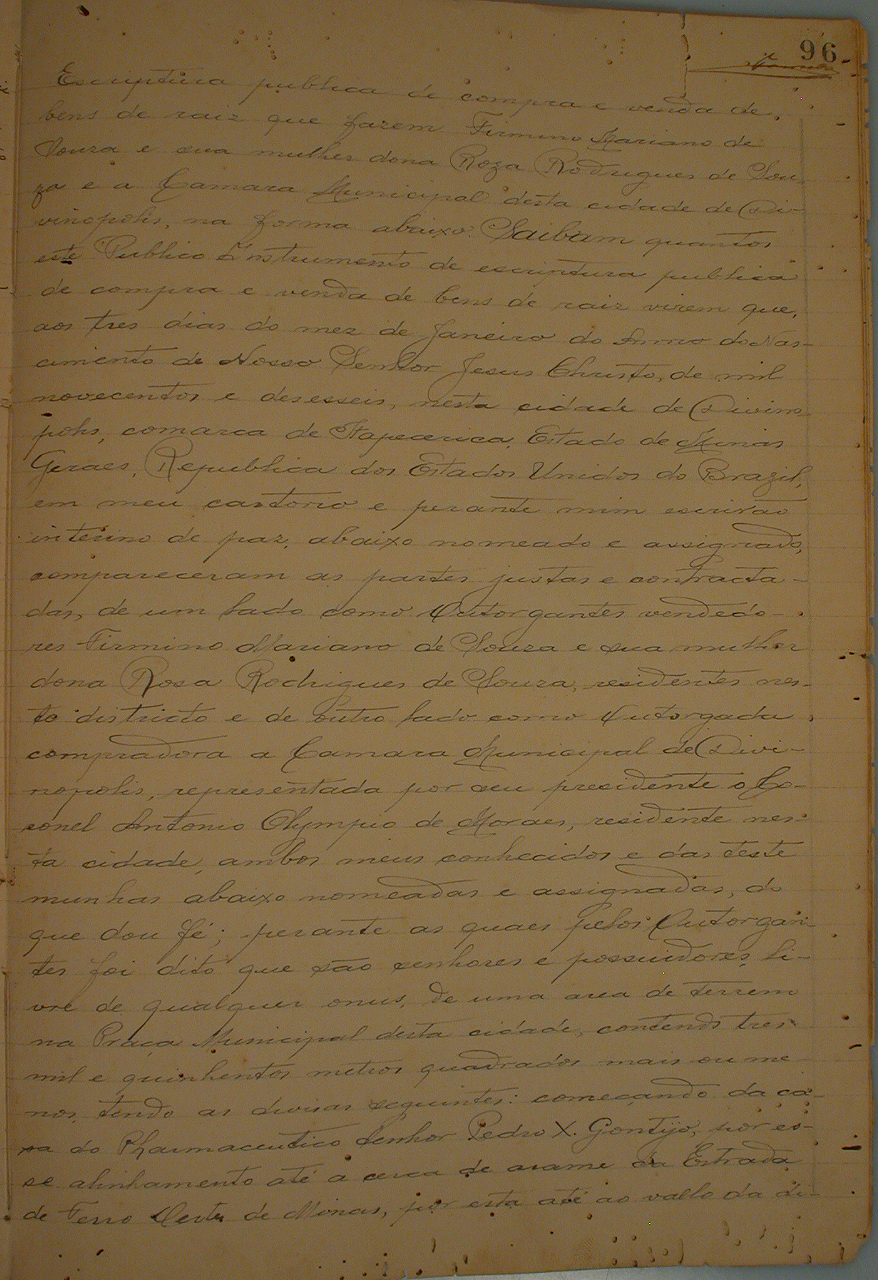 96
Escriptura publica de compra e venda de
bens de raiz que fazem Firmino Mariano de
Souza e sua mulher dona Roza Rodrigues de Sou-
za e a Camara Municipal desta cidade de Di-
vinopolis, na forma abaixo. Saibam quantos
este Publico Instrumento de escriptura publica
de compra e venda de bens de raiz virem que,
aos tres dias do mez de Janeiro do Anno do Nas-
cimento de Nosso Senhor Jesus Christo, de mil
novecentos e desesseis, nesta cidade de Divino
polis, comarca de Itapecerica, Estado de Minas
Geraes, Republica dos Estados Unidos do Brazil,
em meu cartorio e perante mim escrivão
interino de paz, abaixo nomeado e assignado,
compareceram as partes justas e contracta-
das, de um lado como Outorgantes vendedo-
res Firmino Mariano de Souza e sua mulher
dona Rosa Rodrigues de Souza, residentes nes-
te districto e de outro lado como Outorgada
compradora a Camara Municipal de Divi-
nopolis, representada por seu presidente o Co-
ronel Antonio Olympio de Moraes, residente nes-
ta cidade, ambos meus conhecidos e das teste
munhas abaixo nomeadas e assignadas, do
que dou fé; perante as quaes pelos Outorgan-
tes foi dito que são senhores e possuidores, li-
vre de qualquer onus, de uma area de terreno
na Praça Municipal desta cidade, contendo tres
mil e quinhentos metros quadrados mais ou me
nos, tendo as divisas seguintes: começando da ca-
sa do Pharmaceutico Senhor Pedro X. Gontijo, por es-
se alinhamento até a cerca de arame da Estrada
de Ferro Oeste de Minas, por esta até ao vallo da di-